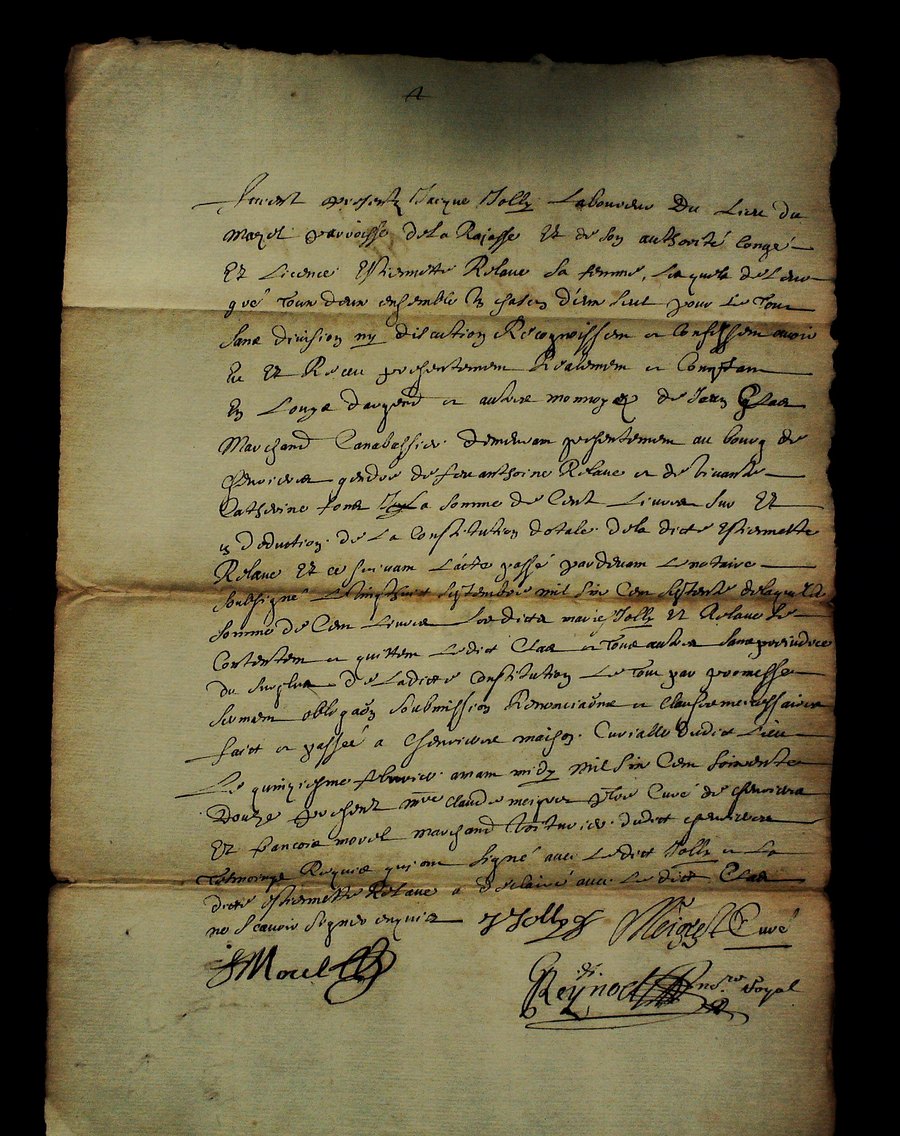 furent presentz Jacque Jolly Laboureur Du Lieu du
Mazel parroisse dela Rajasse Et de son authorité Congé
Et Licence Estiennette Relave sa femme, Laquele de Leur
gré Tous deux ensemble Et chascun d'eux seul pour Le Tout
Sans division ny discution Recognoissent et Confessent avoir
Eu Et Receu presentement Realement et Comptant
En Louys d'argent et autre monnoye de Jean Clae
Marchand Canabassier demeurant presentement au bourg de
Chevrieres gendre de feu anthoine Relave et de vivante
Catherine La somme de Cent Livres Sur Et
en deduction de La Constitution dotale dela dicte Estiennette
Relave Et ce suivant L'acte passé pardevant Le notaire
soubsigné Le vingthuict septembre mil six Cen septente delaquelle
somme de Cen Livres Les dicts mariez Jolly Et Relave se
Contentent et quittent Ledict Clae et Tous autres sans preiudice
du surplus De Ladicte Constitution Le Tout par promesse
serment obligaõn soubmission Renonciaõns et Clauses necessaires
faict et passé a Chevrieres maison Curialle Dudict Lieu
Le quinziesme febvrier avant midy Mil Six Cen soixente
Douze present mre Claude meigret pbre Curé de chevrieres
Et francois morel marchand Voiturier dudict chevrieres
Tesmoings Requis qui ont signé avec Ledict Jolly et La
dicte Estiennette Relave a Declairé avec Le dict Clae
ne scavoir signer enquis J Jolly Meigret Curé
F Morel
Reynod no.re Royal